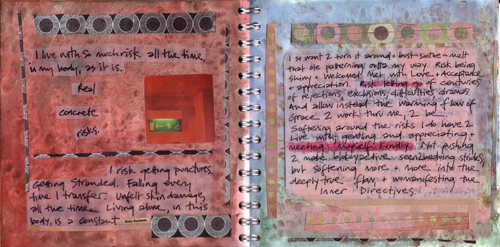 I live with so much risk all the time,
in my body, as it is.
Real
concrete
risks.
I risk getting punctures.
Getting Stranded. Falling every
time I transfer. Unfelt skin damage,
all the time. Living alone, in this
body, is a constant
I so want 2 turn it around + bust + suture + melt
that ole patterning outta my way. Risk being
shiny + Welcomed! Met with Love + Acceptance
+ appreciation. Risk letting go of centuries
of rejections, exclusions, difficulties dramas
And allow instead the warming flow of
Grace 2 work thru me, 2 be...
Softening around the risks I do have 2
Live with, greeting and appreciating +
meeting myself Kindly. Not pushing
2 more blabyactive seen/heaving strides,
but softening more + more into the
deeply true flow + womanifesting the
Inner Directives.